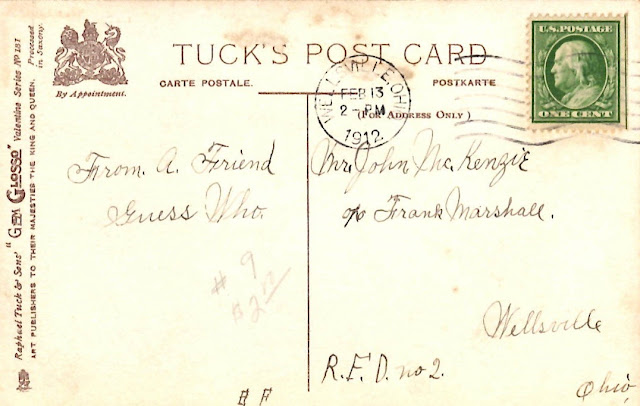 TUCK'S POST CARD
CARTE POSTALE.
POSTKARTE
(FOR ADDRESS ONLY)
By Appointment.
U.S. POSTAGE
ONE CENT
WELLSVILLE, OHIO
FEB 13
2-PM
1912
From. A. Friend
Guess Who.
# 9
Mr. John Mc. Kenzie
c/o Frank Marshall.
Wellsville
R.F.D. no 2.
Ohio,
Raphael Tuck & Sons' "GEM GLOSSO" Valentine Series No 187
ART PUBLISHERS TO THEIR MAJESTIES THE KING AND QUEEN.
Processed
in Saxony.